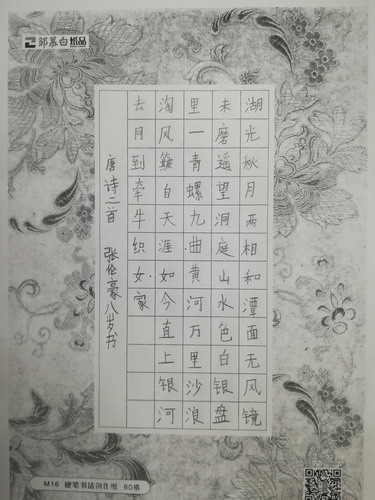 邹慕白纸品
湖光秋月两相和潭面无风镜
未磨遥望洞庭山水色白银盘
里一青螺九曲黄河万里沙浪
淘风簸自天涯如今直上银河
去月到牵牛织女家
唐诗二首 张伦豪八岁书
M16 硬笔书法创作纸 60格